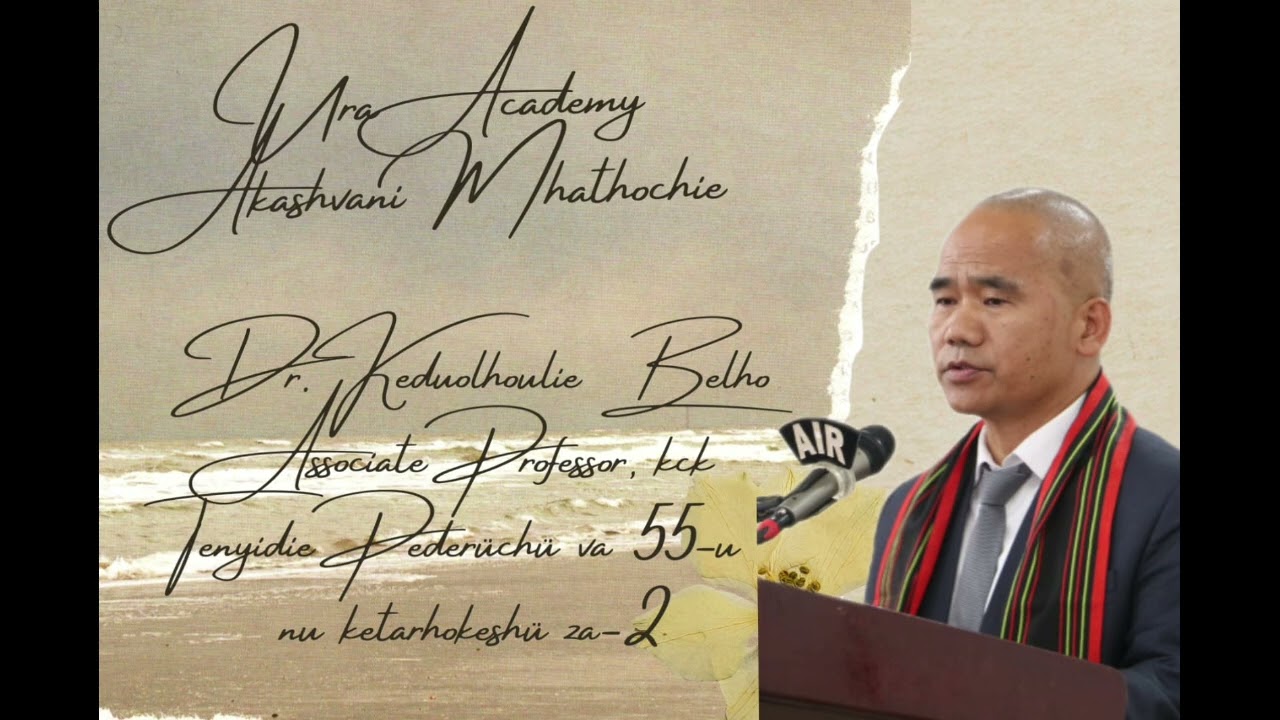 Ura Academy
Akashvani Mhathochie
Dr. Keduolhoulie Belho
Associate Professor, kck
Tenyidie Pederüchü va 55-u
nu ketarhokeshü za-2
AIR